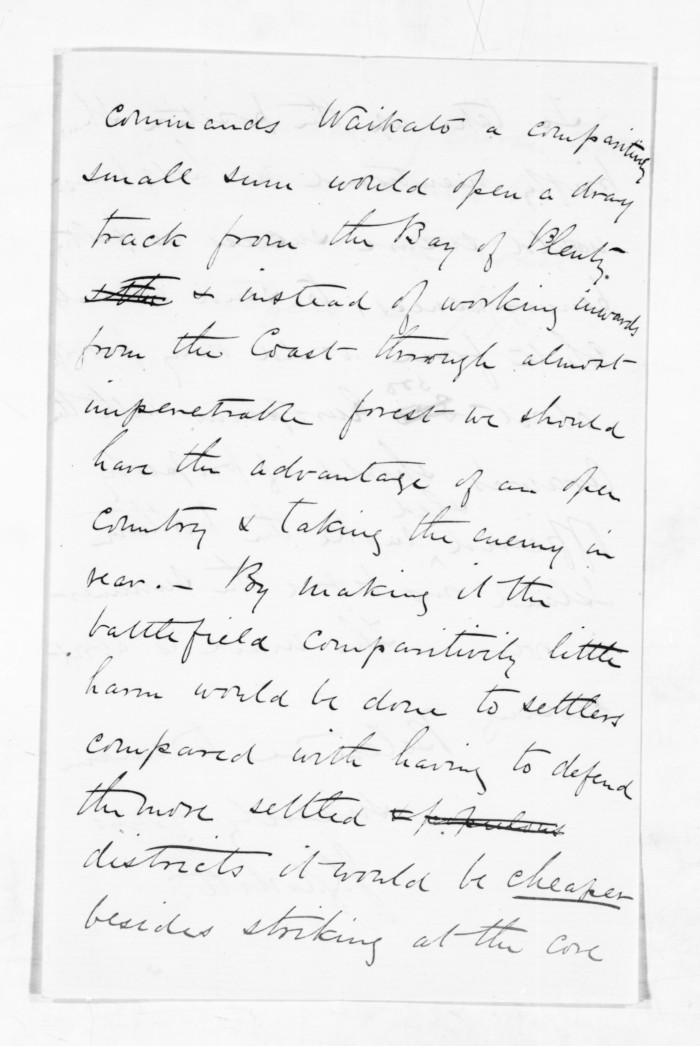 commands Waikato a compartively
small sum would open a dray
track from the Bay of Plenty.
& the & instead of working inwards
from the Coast through almost
impenetrable forest we should
have the advantage of an open
country & taking the enemy in
rear. — By making it the
battlefield comparitively little
harm would be done to settlers
compared with having to defend
the more settled & populous
districts it would be cheaper
besides striking at the core